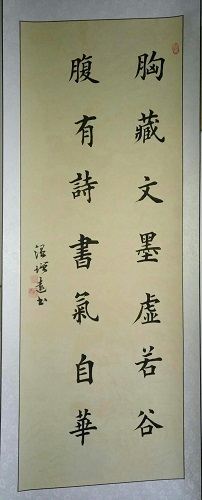 胸藏文墨虛若谷
腹有詩書氣自華